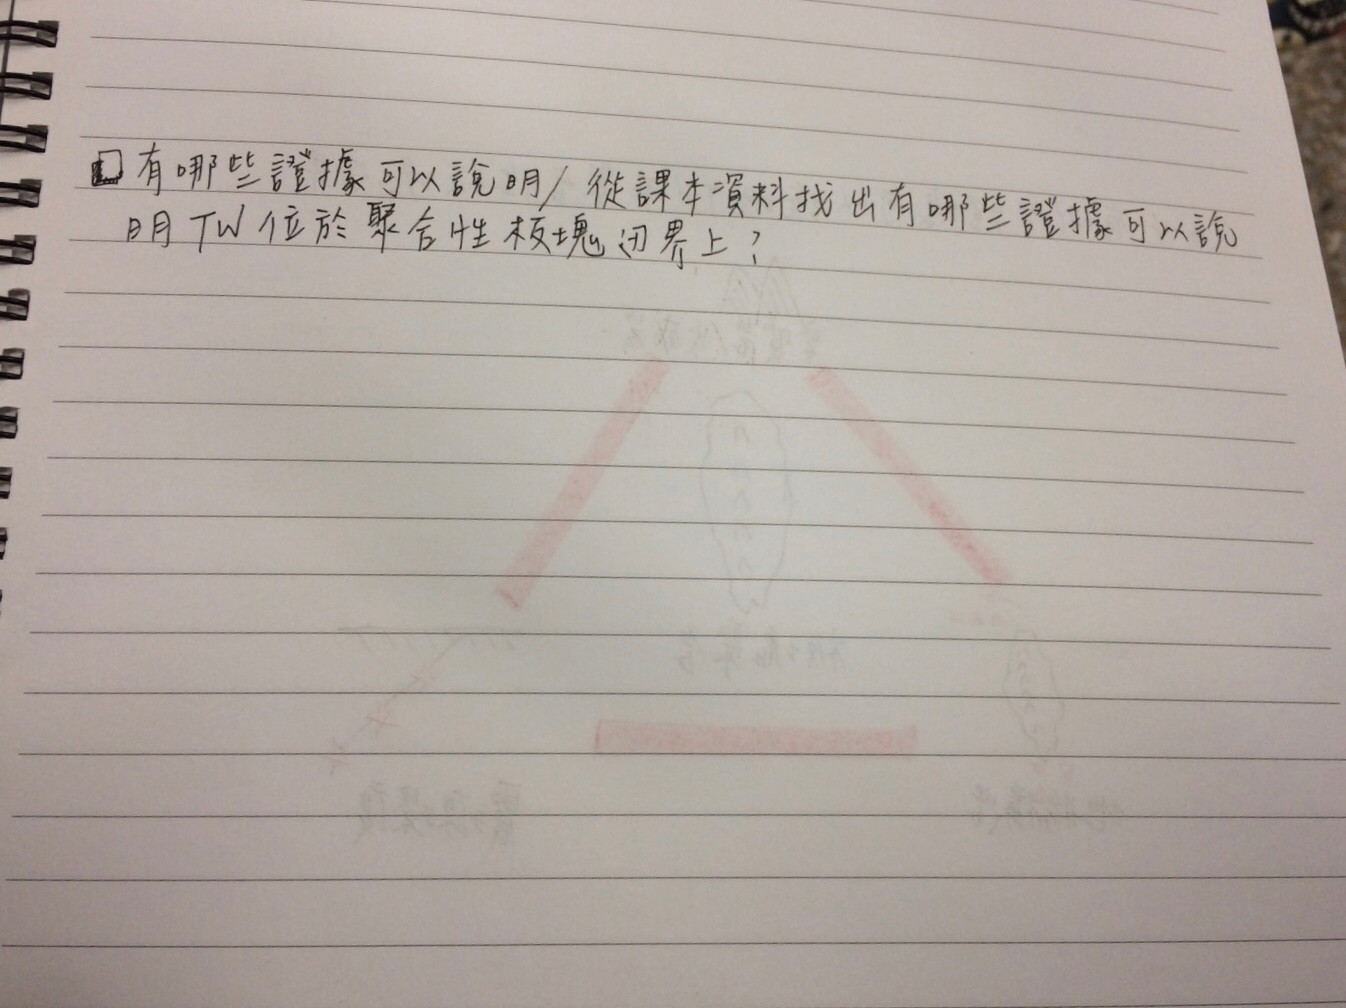 有哪些證據可以說明/從課本資料找出有哪些證據可以說
明TW位於聚合性板塊边界上?